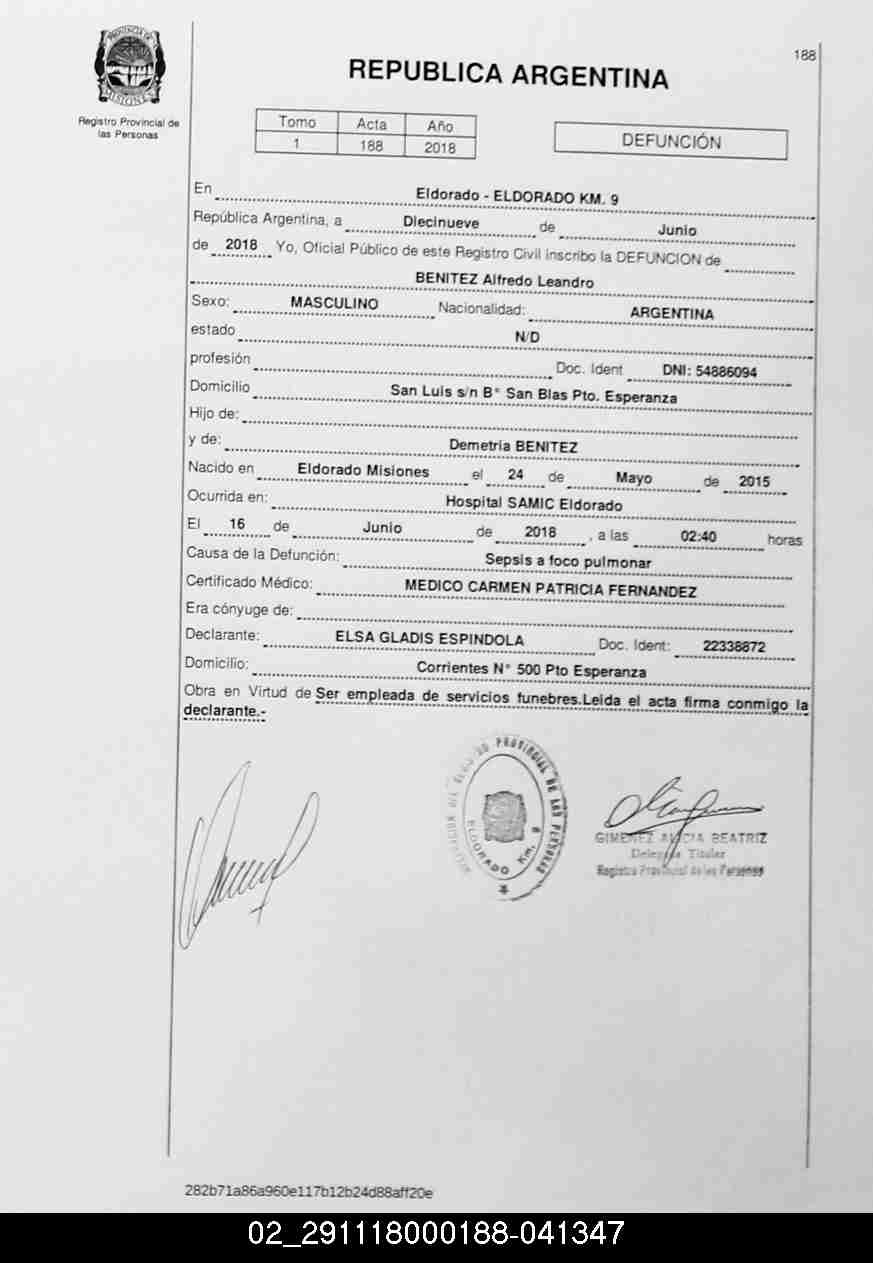 188
PROVINCIA DE
MISIONES
Registro Provincial de
las Personas
REPUBLICA ARGENTINA
Tomo Acta Año
1 188 2018
DEFUNCIÓN
En Eldorado - ELDORADO KM. 9
República Argentina, a Diecinueve de Junio
de 2018 Yo, Oficial Público de este Registro Civil inscribo la DEFUNCION de
BENITEZ Alfredo Leandro
Sexo: MASCULINO Nacionalidad: ARGENTINA
estado N/D
profesión Doc. Ident DNI: 54886094
Domicilio San Luis s/n B° San Blas Pto. Esperanza
Hijo de:
y de: Demetria BENITEZ
Nacido en Eldorado Misiones el 24 de Mayo de 2015
Ocurrida en: Hospital SAMIC Eldorado
El 16 de Junio de 2018 , a las 02:40 horas
Causa de la Defunción: Sepsis a foco pulmonar
Certificado Médico: MEDICO CARMEN PATRICIA FERNANDEZ
Era cónyuge de:
Declarante: ELSA GLADIS ESPINDOLA Doc. Ident: 22338872
Domicilio: Corrientes N° 500 Pto Esperanza
Obra en Virtud de Ser empleada de servicios funebres.Leida el acta firma conmigo la
declarante.-
PROVINCIAL DE LAS PERSONAS
ELDORADO Km. 9
GIMENEZ ALICIA BEATRIZ
Delegada Titular
Registro Provincial de las Personas
282b71a86a960e117b12b24d88aff20e
02_291118000188-041347